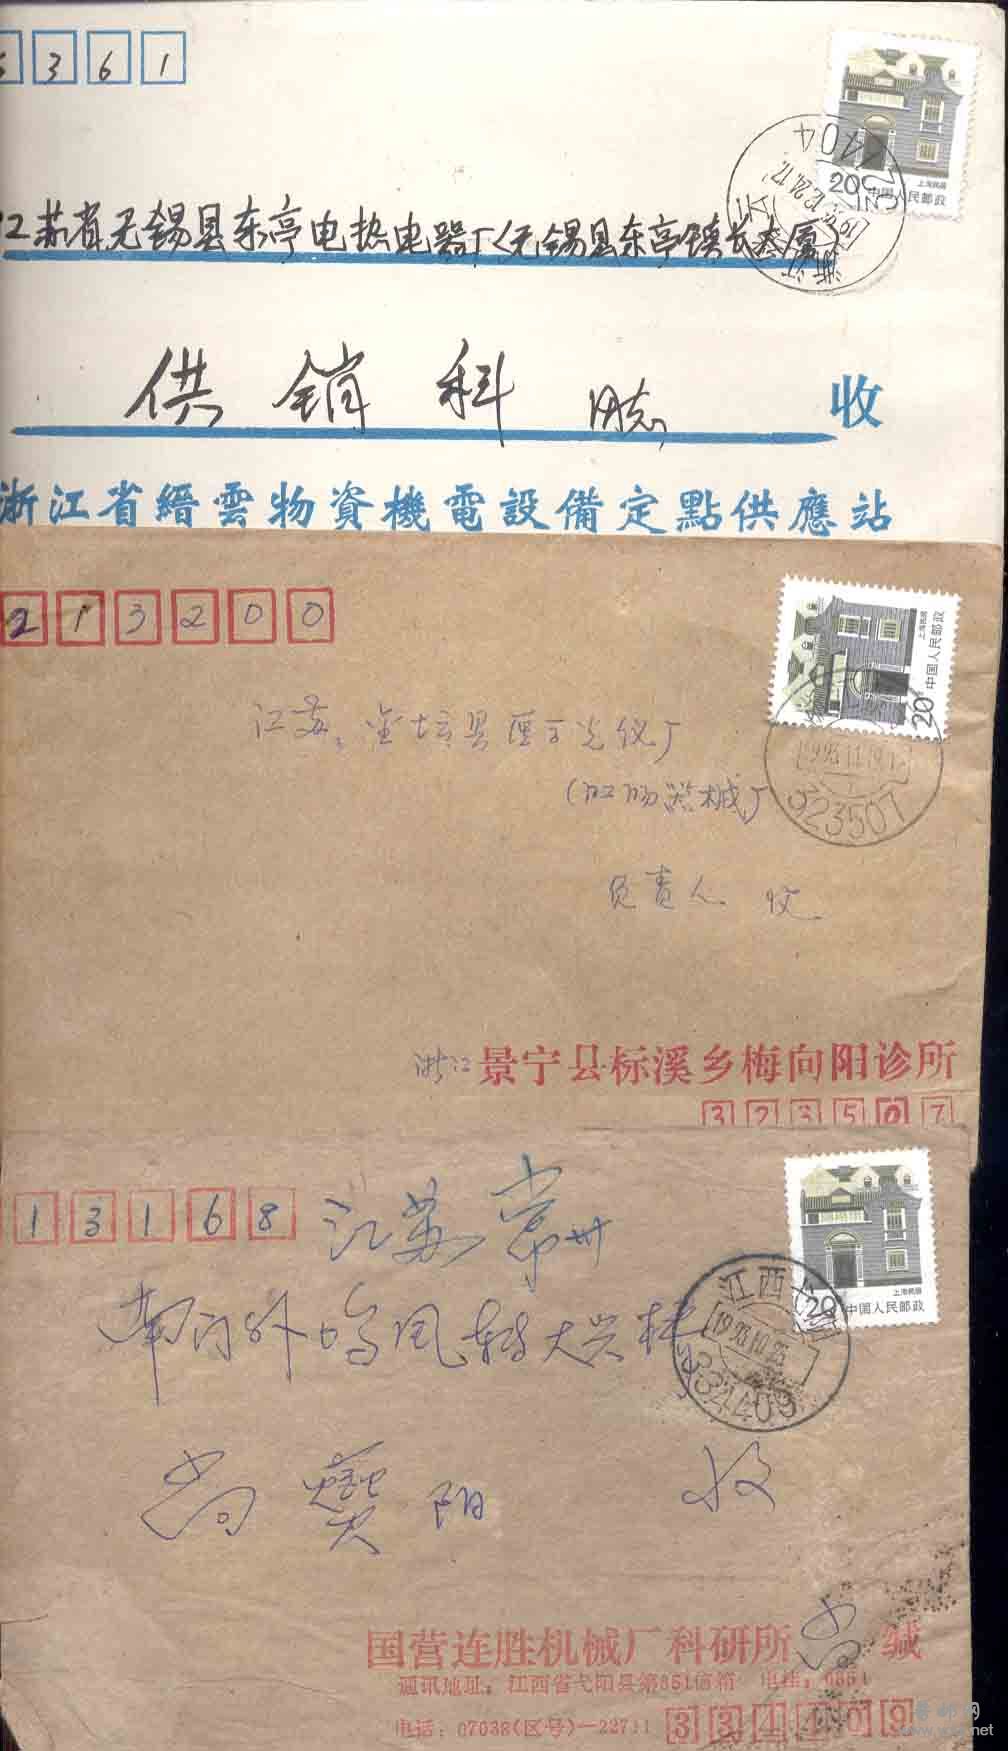 361
上海民居
20分
中国人民邮政
江苏省无锡县东亭电热电器厂(无锡县东亭镇长泰厦)
供销科 同志
收
浙江省缙雲物資機電設備定點供應站
213200
上海民居
20分
中国人民邮政
江苏:金坛县医用光仪厂
器械厂
1993.11.19
323507
负责人 收
浙江 景宁县标溪乡梅向阳诊所
323507
13168
江苏 常州
上海民居
20分
中国人民邮政
南门外鸣凤转大兴村
江西
1993.10.25
334409
尚燮阳 收
国营连胜机械厂科研所 尚 缄
通讯地址:江西省弋阳县第351信箱 电挂:0351
电话:07038(区号)—22711 334409